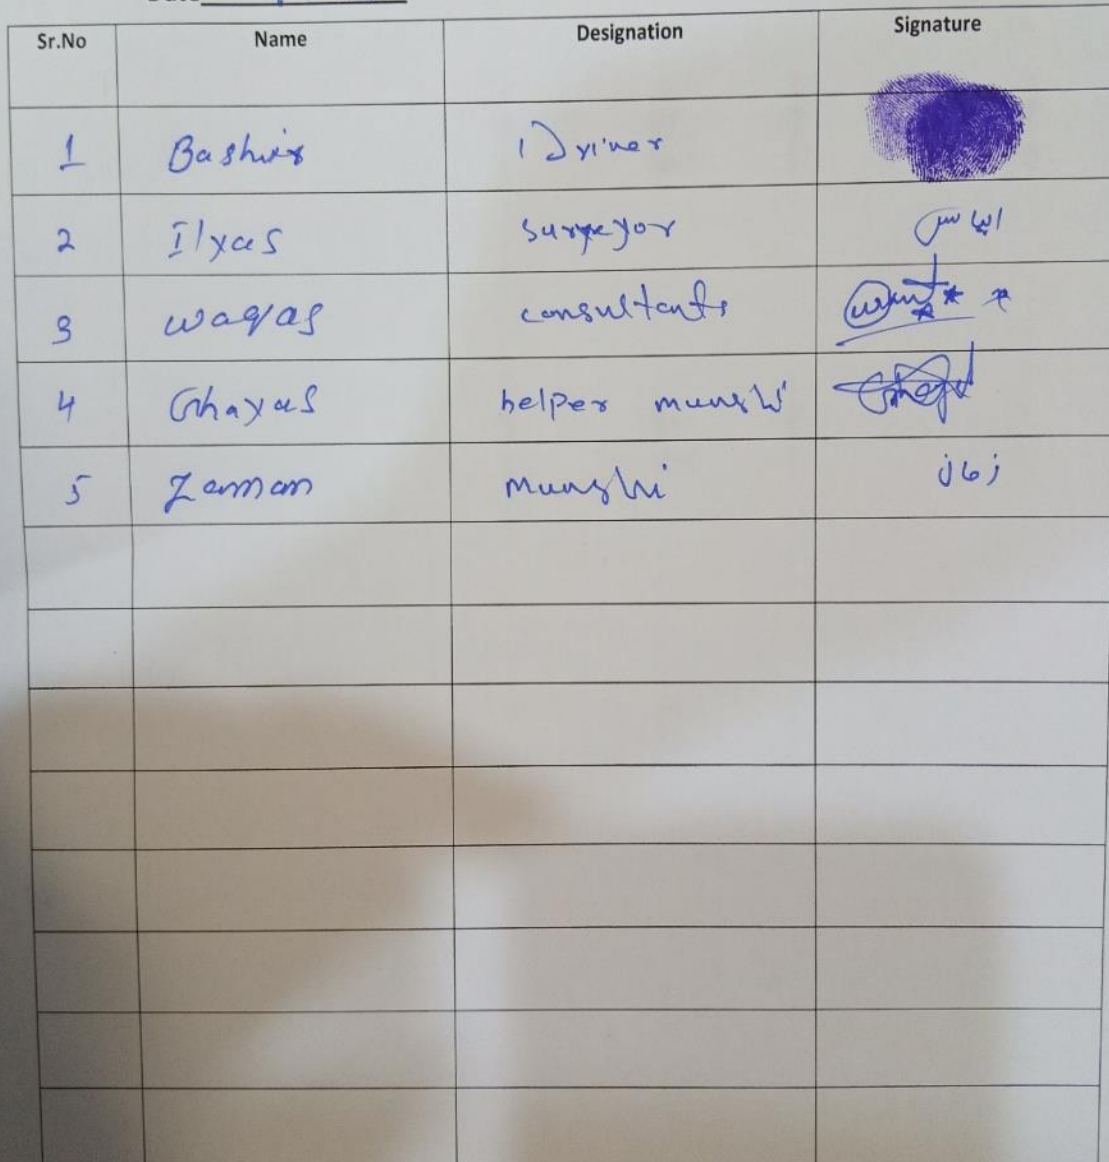 Sr.No Name Designation Signature
1 Bashir Driver
2 Ilyas Surveyor الیاس
3 waqas consultants
4 Ghayas helper munshi
5 Zaman munshi زمان